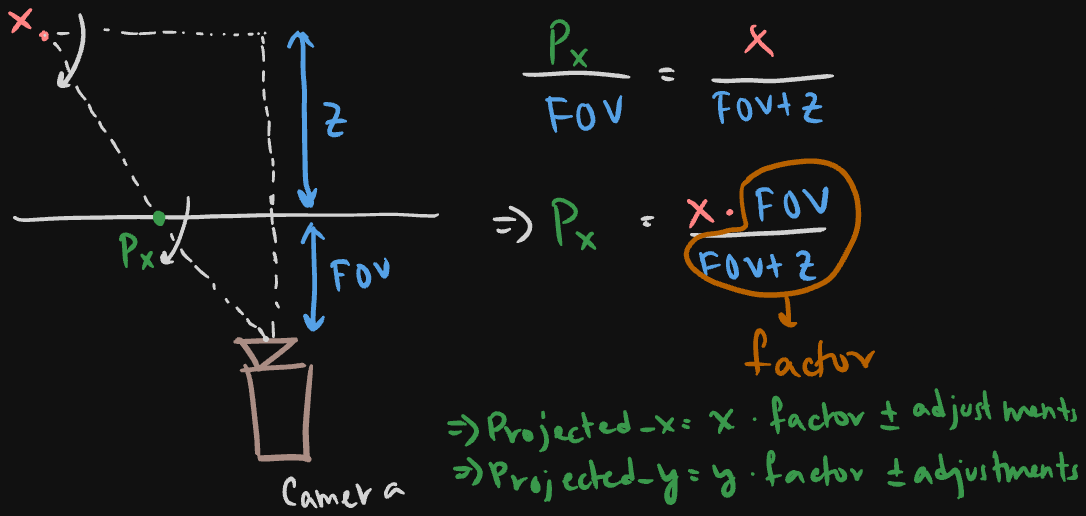 x
z
Px
FOV
Camera
Px / FOV = x / FOV+z
⇒ Px = x · FOV / FOV+z
factor
⇒ Projected_x = x · factor ± adjustments
⇒ Projected_y = y · factor ± adjustments